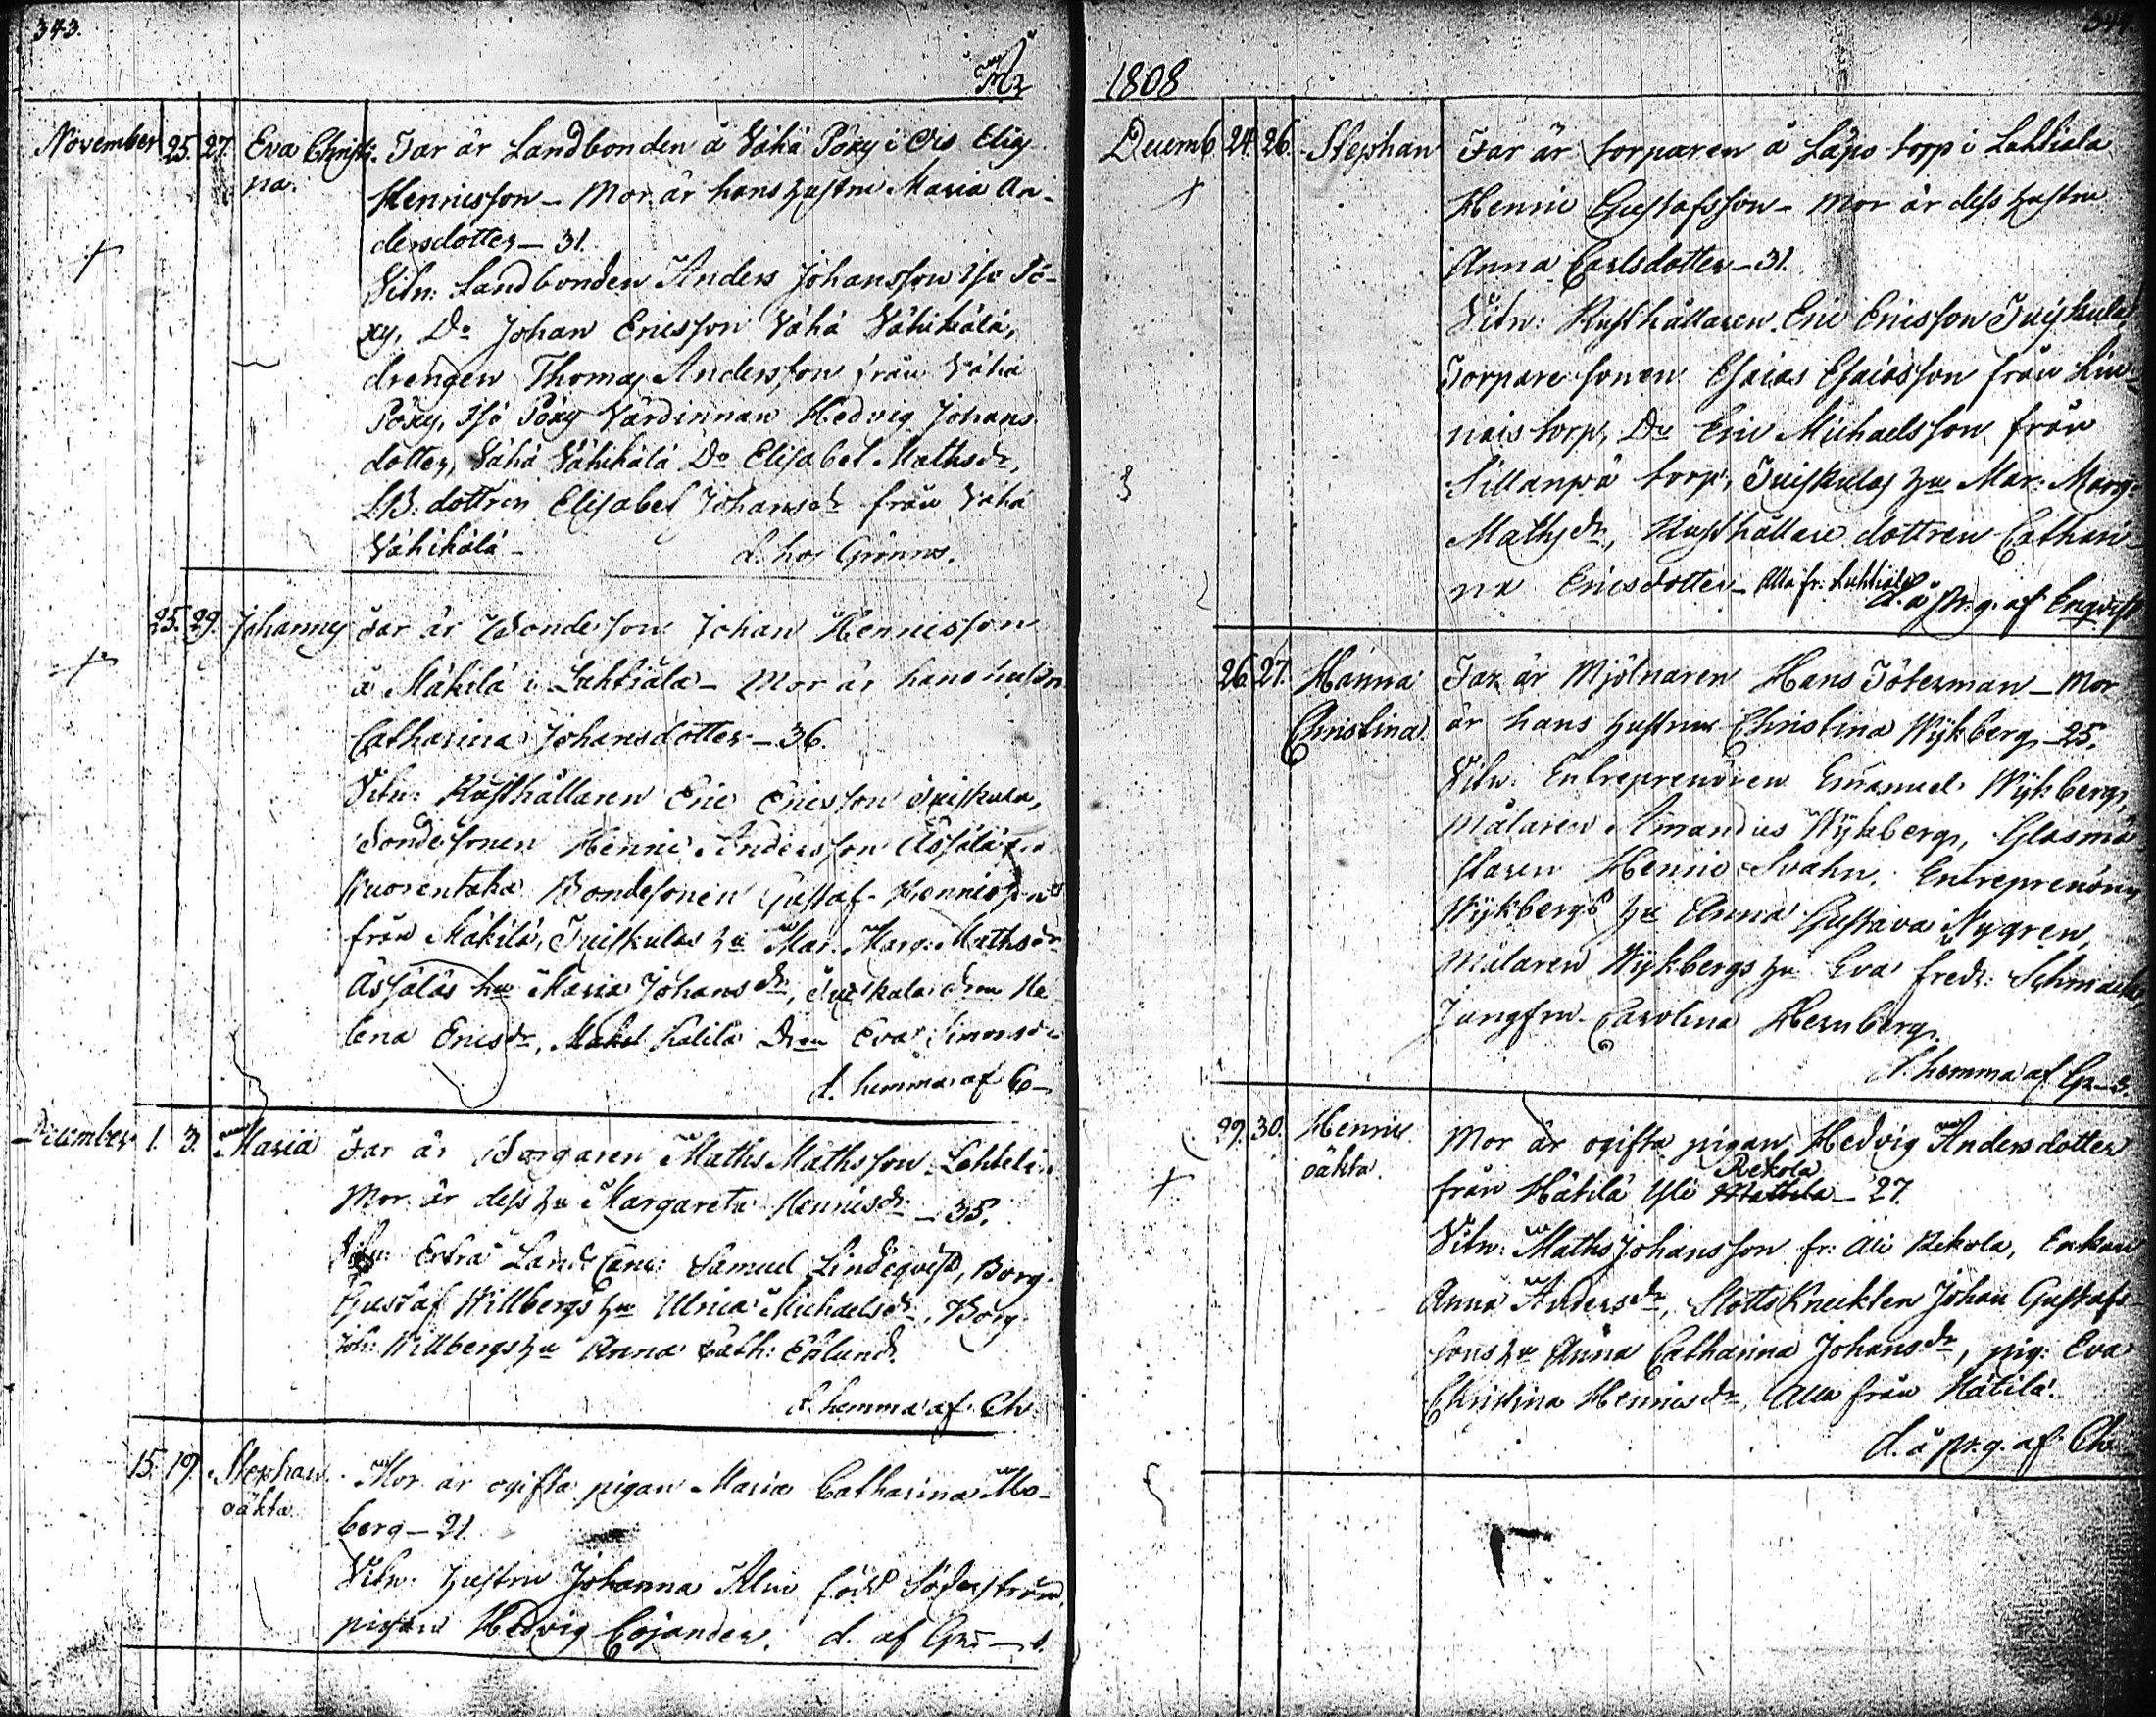 343.
November 25. 27. Eva Christi- Far är Landbonden å Vähä Pöxy i Ois Elig
na. Henricsson – Mor är hans hustru Maria An-
dersdotter – 31.
Vitn: Landbonden Anders Johansson Iso Pö-
xy, Do Johan Ericsson Vähä Vähikälä,
drengen Thomas Andersson från Vähä
Pöxy, Iso Pöxy Värdinnan Hedvig Johans
dotter, Vähä Vähikälä Do Elisabet Mathsdr,
LB: dottren Elisabet Johansdr från Vähä
Vähikälä – d. hos Grönros.
25. 29. Johannes Far är Bondeson Johan Henricsson
å Mäkilä i Luhtiala – Mor är hans hustru
Catharina Johansdotter – 36.
Vitn: Rusthållaren Eric Ericsson Tuiskula,
Bondesonen Henric Andersson Ässälä
Vuorentaka Bondesonen Gustaf Henricsson
från Mäkilä, Tuiskulas hu Mar. Marg: Mathsdr
Ässäläs hu Maria Johansdr, Tuiskula He
lena Ericsdr, Eva Simonsdr
d. hemma af
December 1. 3. Maria Far är Borgaren Maths Mathsson Lehtelin
Mor är dess hu Margareta Henricsdr – 35.
Vitn: Extra Land Canc: Samuel Lindeqvist, Borg.
Gustaf Willbergs hu Ulrica Michaelsdr, Borg
Joh: Willbergs hu Anna Cath: Enlund.
d. hemma af Ch
15. 19. Stephan Mor är ogifta pigan Maria Catharina Mo-
oäkta. berg – 21.
Vitn: hustru Johanna Alm född Söderström,
pigan Hedvig Cajander. d. af Grö–s.
1808
Decemb 24. 26. Stephan Far är torparen å Läpo torp i Luhtiala
Henric Gustafsson – Mor är dess hustru
Anna Carlsdotter – 31.
Vitn: Rusthållaren Eric Ericsson Tuiskula
Torpare sonen Esaias Esaiasson från Lin-
nais torp, Do Eric Michaelsson från
Sillanpä torp, Tuiskulas hu Mar: Marg:
Mathsdr, Rusthållare dottren Cathari-
na Ericsdotter – Alla fr: Luhtiala
d. å pr. g. af Enqvist
26. 27. Hanna Far är Mjölnaren Hans Töterman – Mor
Christina är hans hustru Christina Wykberg – 25.
Vitn: Entreprenören Emanuel Wykberg,
Målaren Amandus Wykberg, Glasmä
staren Henric Svahn. Entreprenörens
Wykbergs hu Anna Gustava Nygren,
Målaren Wykbergs hu Eva Fredr:
Jungfru Carolina Hernberg.
d. hemma af Gr–s.
29. 30. Henric Mor är ogifta pigan Hedvig Andersdotter
oäkta. från Hätilä Yli Mattila Rekola – 27.
Vitn: Maths Johansson fr: Ali Rekola, Enkan
Anna Andersdr, Slotts Knekten Johan Gustafs
sons hu Anna Catharina Johansdr, pig: Eva
Christina Henricsdr, Alla från Hätilä.
d. å pr. g. af Ch